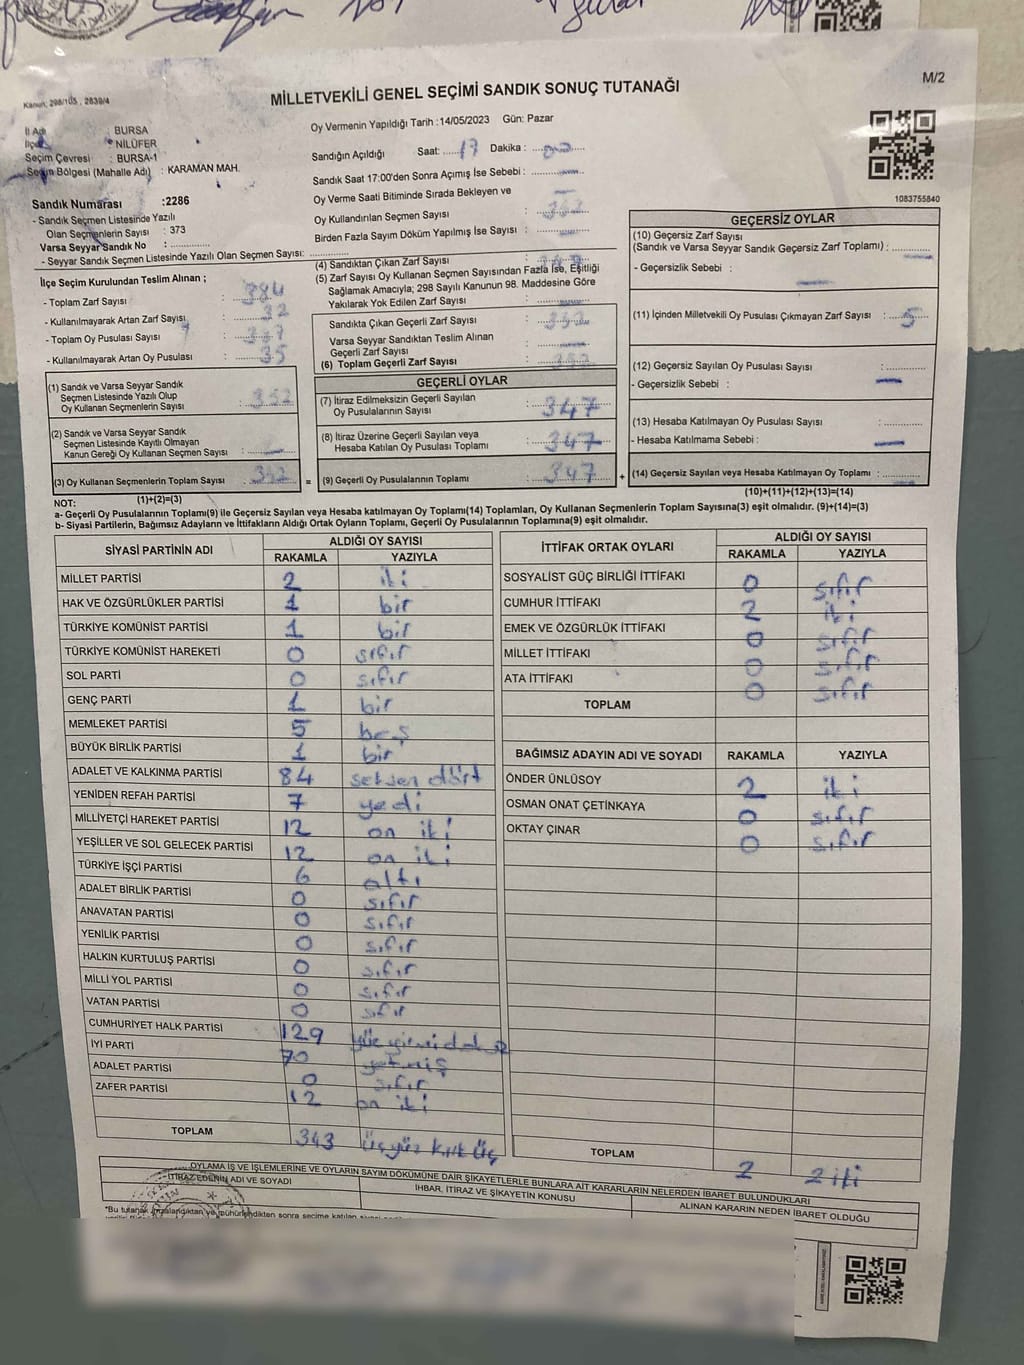 M/2
Kanun, 298/105 , 2839/4
MİLLETVEKİLİ GENEL SEÇİMİ SANDIK SONUÇ TUTANAĞI
İl Adı : BURSA
İlçe : NİLÜFER
Seçim Çevresi : BURSA-1
Seçim Bölgesi (Mahalle Adı) : KARAMAN MAH.
Sandık Numarası :2286
- Sandık Seçmen Listesinde Yazılı
Olan Seçmenlerin Sayısı : 373
Varsa Seyyar Sandık No :
- Seyyar Sandık Seçmen Listesinde Yazılı Olan Seçmen Sayısı:
Oy Vermenin Yapıldığı Tarih :14/05/2023 Gün: Pazar
Sandığın Açıldığı Saat: 17 Dakika : 00
Sandık Saat 17:00'den Sonra Açılmış İse Sebebi :
Oy Verme Saati Bitiminde Sırada Bekleyen ve
Oy Kullandırılan Seçmen Sayısı :
Birden Fazla Sayım Döküm Yapılmış İse Sayısı :
1083755840
İlçe Seçim Kurulundan Teslim Alınan ;
- Toplam Zarf Sayısı : 384
- Kullanılmayarak Artan Zarf Sayısı : 32
- Toplam Oy Pusulası Sayısı : 387
- Kullanılmayarak Artan Oy Pusulası : 35
(1) Sandık ve Varsa Seyyar Sandık
Seçmen Listesinde Yazılı Olup
Oy Kullanan Seçmenlerin Sayısı : 352
(2) Sandık ve Varsa Seyyar Sandık
Seçmen Listesinde Kayıtlı Olmayan
Kanun Gereği Oy Kullanan Seçmen Sayısı :
(3) Oy Kullanan Seçmenlerin Toplam Sayısı : 352 =
(1)+(2)=(3)
(4) Sandıktan Çıkan Zarf Sayısı :
(5) Zarf Sayısı Oy Kullanan Seçmen Sayısından Fazla İse, Eşitliği
Sağlamak Amacıyla; 298 Sayılı Kanunun 98. Maddesine Göre
Yakılarak Yok Edilen Zarf Sayısı :
Sandıkta Çıkan Geçerli Zarf Sayısı : 352
Varsa Seyyar Sandıktan Teslim Alınan
Geçerli Zarf Sayısı :
(6) Toplam Geçerli Zarf Sayısı : 352
GEÇERLİ OYLAR
(7) İtiraz Edilmeksizin Geçerli Sayılan
Oy Pusulalarının Sayısı : 347
(8) İtiraz Üzerine Geçerli Sayılan veya
Hesaba Katılan Oy Pusulası Toplamı : 347
(9) Geçerli Oy Pusulalarının Toplamı : 347 +
GEÇERSİZ OYLAR
(10) Geçersiz Zarf Sayısı
(Sandık ve Varsa Seyyar Sandık Geçersiz Zarf Toplamı) :
- Geçersizlik Sebebi :
(11) İçinden Milletvekili Oy Pusulası Çıkmayan Zarf Sayısı : 5
(12) Geçersiz Sayılan Oy Pusulası Sayısı :
- Geçersizlik Sebebi :
(13) Hesaba Katılmayan Oy Pusulası Sayısı
- Hesaba Katılmama Sebebi :
(14) Geçersiz Sayılan veya Hesaba Katılmayan Oy Toplamı :
(10)+(11)+(12)+(13)=(14)
NOT:
a- Geçerli Oy Pusulalarının Toplamı(9) ile Geçersiz Sayılan veya Hesaba katılmayan Oy Toplamı(14) Toplamları, Oy Kullanan Seçmenlerin Toplam Sayısına(3) eşit olmalıdır. (9)+(14)=(3)
b- Siyasi Partilerin, Bağımsız Adayların ve İttifakların Aldığı Ortak Oyların Toplamı, Geçerli Oy Pusulalarının Toplamına(9) eşit olmalıdır.
SİYASİ PARTİNİN ADI ALDIĞI OY SAYISI
RAKAMLA YAZIYLA
MİLLET PARTİSİ 2 iki
HAK VE ÖZGÜRLÜKLER PARTİSİ 1 bir
TÜRKİYE KOMÜNİST PARTİSİ 1 bir
TÜRKİYE KOMÜNİST HAREKETİ 0 sıfır
SOL PARTİ 0 sıfır
GENÇ PARTİ 1 bir
MEMLEKET PARTİSİ 5 beş
BÜYÜK BİRLİK PARTİSİ 1 bir
ADALET VE KALKINMA PARTİSİ 84 seksen dört
YENİDEN REFAH PARTİSİ 7 yedi
MİLLİYETÇİ HAREKET PARTİSİ 12 on iki
YEŞİLLER VE SOL GELECEK PARTİSİ 12 on iki
TÜRKİYE İŞÇİ PARTİSİ 6 altı
ADALET BİRLİK PARTİSİ 0 sıfır
ANAVATAN PARTİSİ 0 sıfır
YENİLİK PARTİSİ 0 sıfır
HALKIN KURTULUŞ PARTİSİ 0 sıfır
MİLLİ YOL PARTİSİ 0 sıfır
VATAN PARTİSİ 0 sıfır
CUMHURİYET HALK PARTİSİ 129 yüz yirmi dokuz
İYİ PARTİ 70 yetmiş
ADALET PARTİSİ 0 sıfır
ZAFER PARTİSİ 12 on iki
TOPLAM 343 üçyüz kırk üç
İTTİFAK ORTAK OYLARI ALDIĞI OY SAYISI
RAKAMLA YAZIYLA
SOSYALİST GÜÇ BİRLİĞİ İTTİFAKI 0 sıfır
CUMHUR İTTİFAKI 2 iki
EMEK VE ÖZGÜRLÜK İTTİFAKI 0 sıfır
MİLLET İTTİFAKI 0 sıfır
ATA İTTİFAKI 0 sıfır
TOPLAM
BAĞIMSIZ ADAYIN ADI VE SOYADI RAKAMLA YAZIYLA
ÖNDER ÜNLÜSOY 2 iki
OSMAN ONAT ÇETİNKAYA 0 sıfır
OKTAY ÇINAR 0 sıfır
TOPLAM 2 2 iki
OYLAMA İŞ VE İŞLEMLERİNE VE OYLARIN SAYIM DÖKÜMÜNE DAİR ŞİKAYETLERLE BUNLARA AİT KARARLARIN NELERDEN İBARET BULUNDUKLARI
İTİRAZ EDENİN ADI VE SOYADI İHBAR, İTİRAZ VE ŞİKAYETİN KONUSU ALINAN KARARIN NEDEN İBARET OLDUĞU